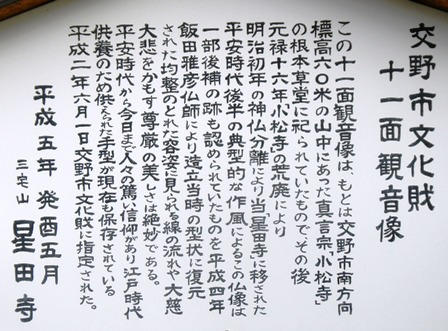 交野市文化財
十一面観音像
この十一面観音像は、もとは交野市南方向
標高六〇米の山中にあった真言宗「小松寺」
の根本草堂に祀られていたもので、その後
元禄十六年小松寺の荒廃により
明治初年の神仏分離により当星田寺に移された
平安時代後半の典型的な作風によるこの仏像は
一部後補の跡も認められていたものを平成四年
飯田雅彦仏師により造立当時の型状に復元
された均整のとれた容姿に見られる線の流れや大慈
大悲をかもす尊厳の美しさは絶妙である。
平安時代から今日まで人々の篤い信仰があり江戸時代
供養のため供えられた手型が現在も保存されている
平成二年六月一日交野市文化財に指定された。
平成五年癸酉五月
三宅山 星田寺